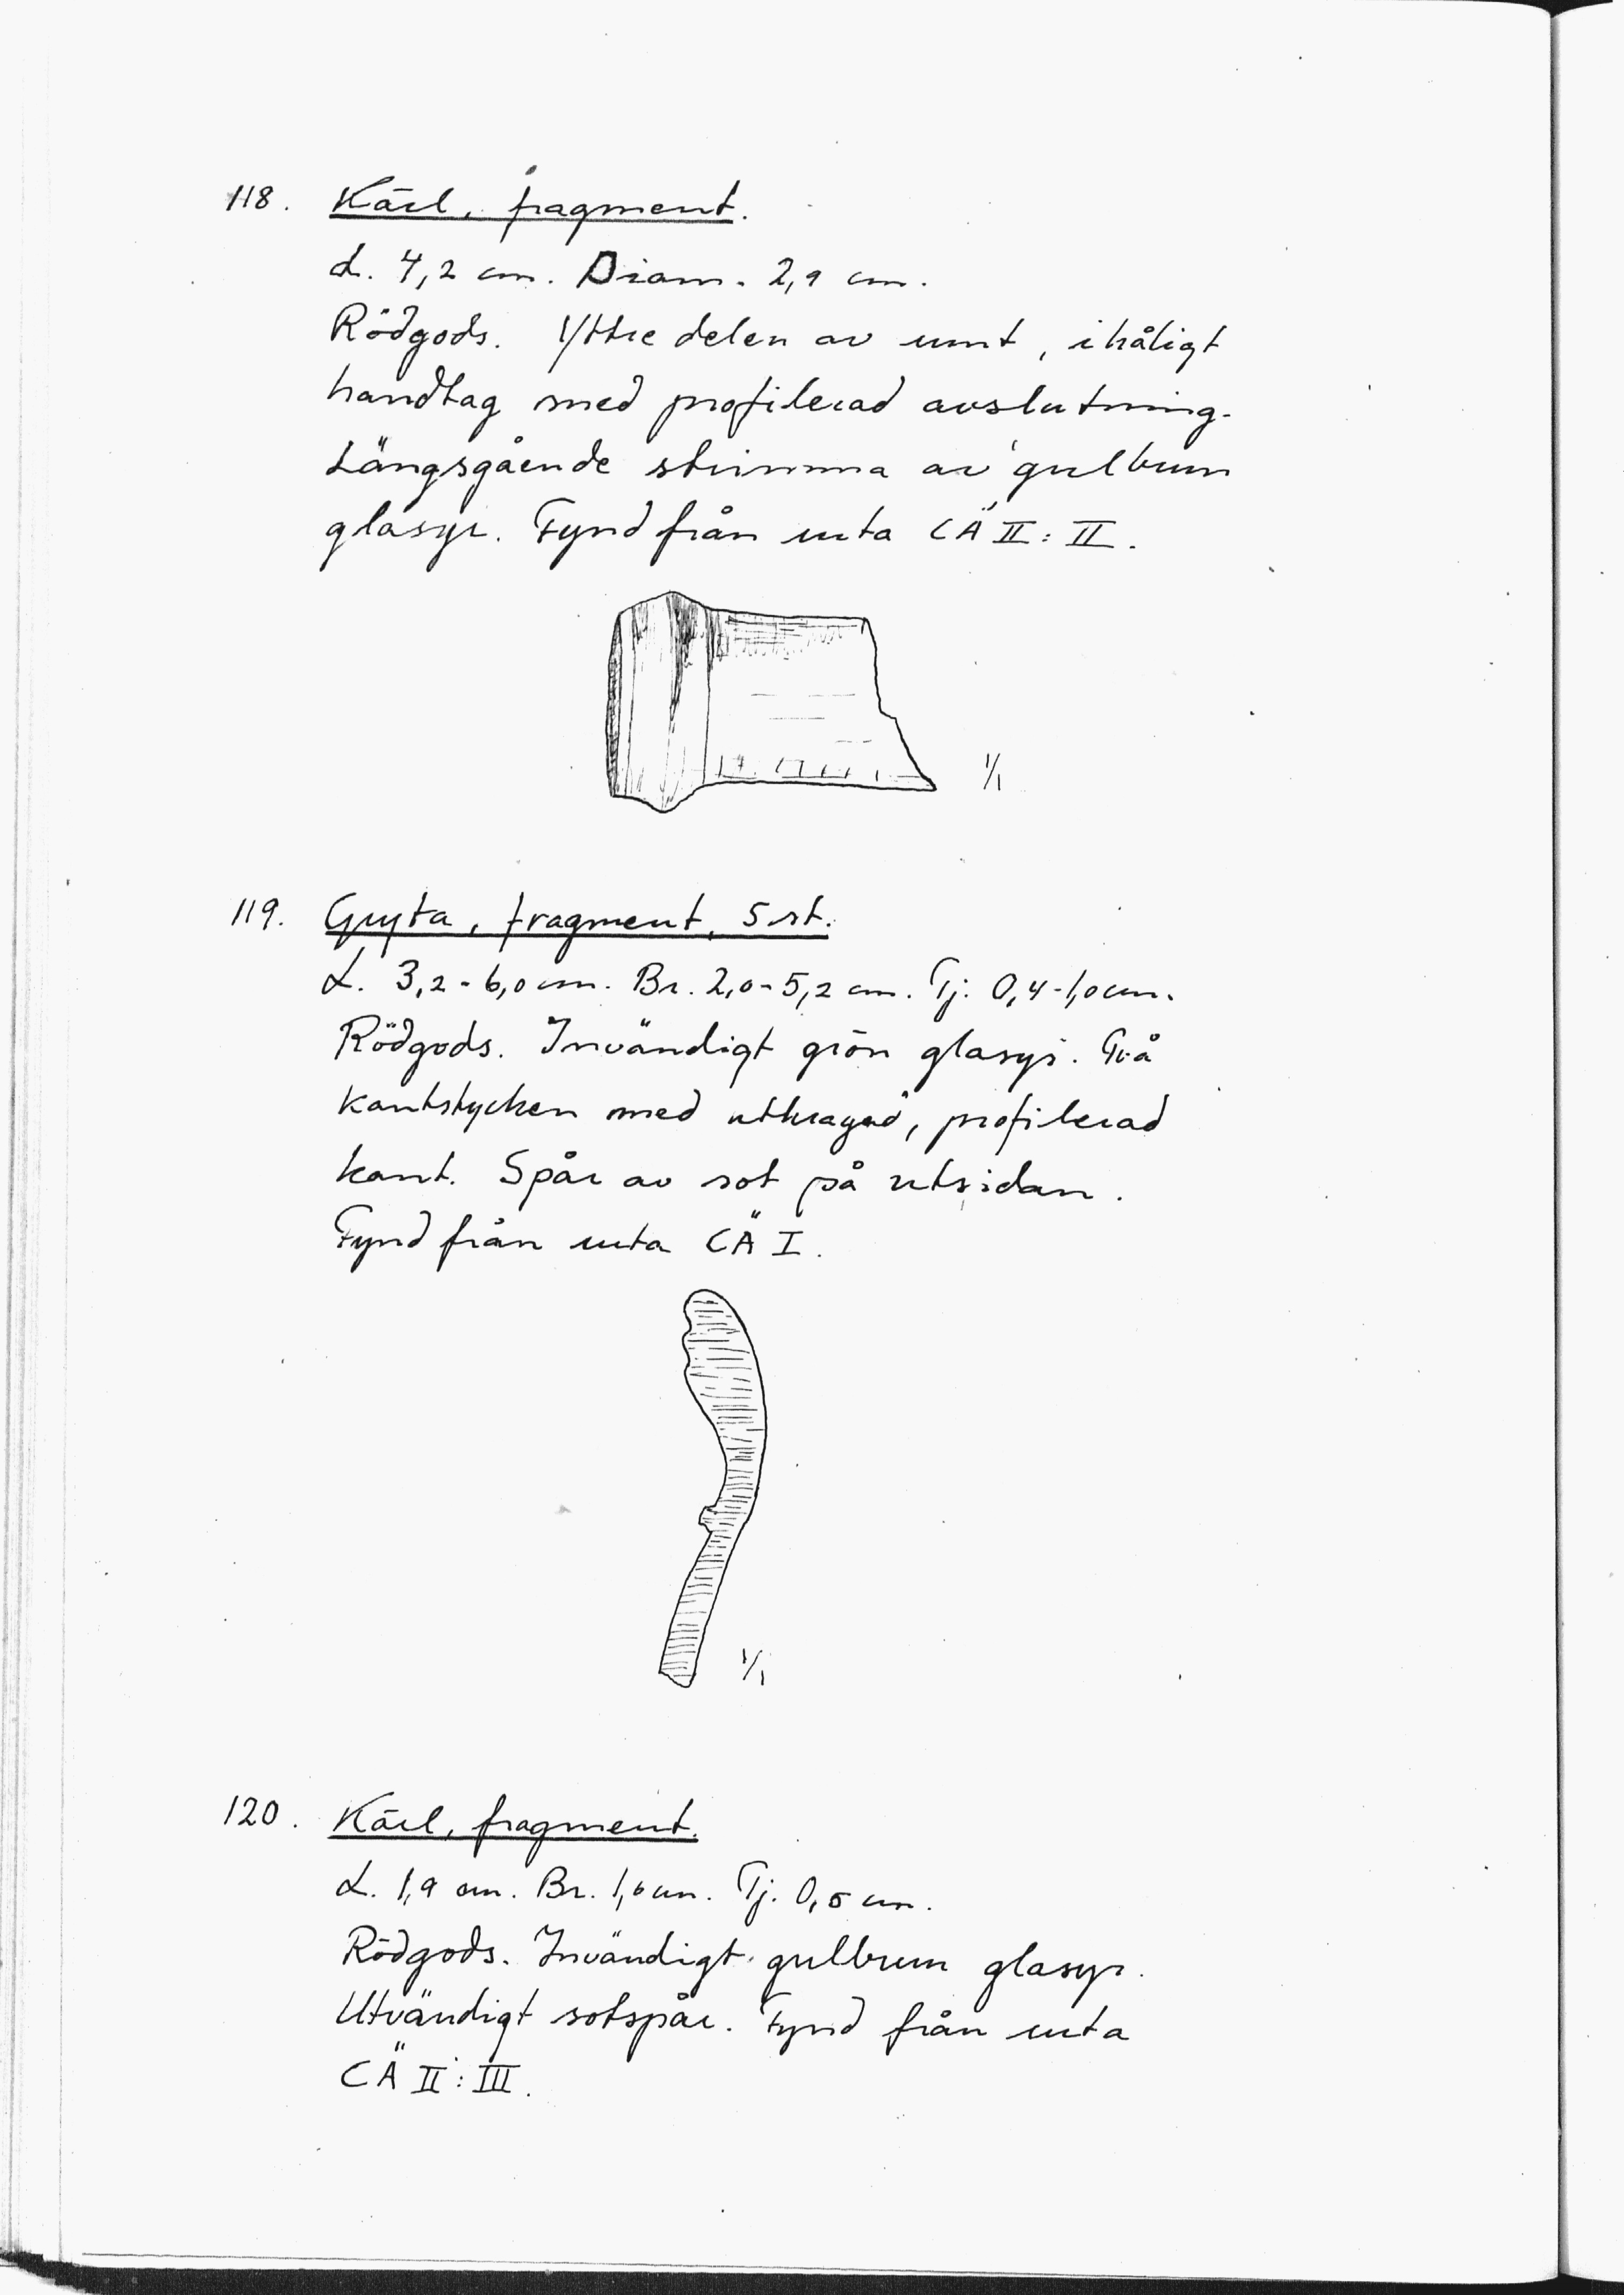 118. Kärl, fragment.
L. 4,2 cm. Diam. 2,9 cm.
Rödgods. Yttre delen av runt, ihåligt
handtag med profilerad avslutning.
Längsgående strimma av gulbrun
glasyr. Fynd från ruta CÄ II:II.
1/1
119. Gryta, fragment, 5 st.
L. 3,2-6,0 cm. Br. 2,0-5,2 cm. Tj. 0,4-1,0 cm.
Rödgods. Invändigt grön glasyr. Två
kantstycken med utkragad, profilerad
kant. Spår av sot på utsidan.
Fynd från ruta CÄ I.
1/1
120. Kärl, fragment.
L. 1,9 cm. Br. 1,6 cm. Tj. 0,5 cm.
Rödgods. Invändigt gulbrun glasyr.
Utvändigt sotspår. Fynd från ruta
CÄ II:III.